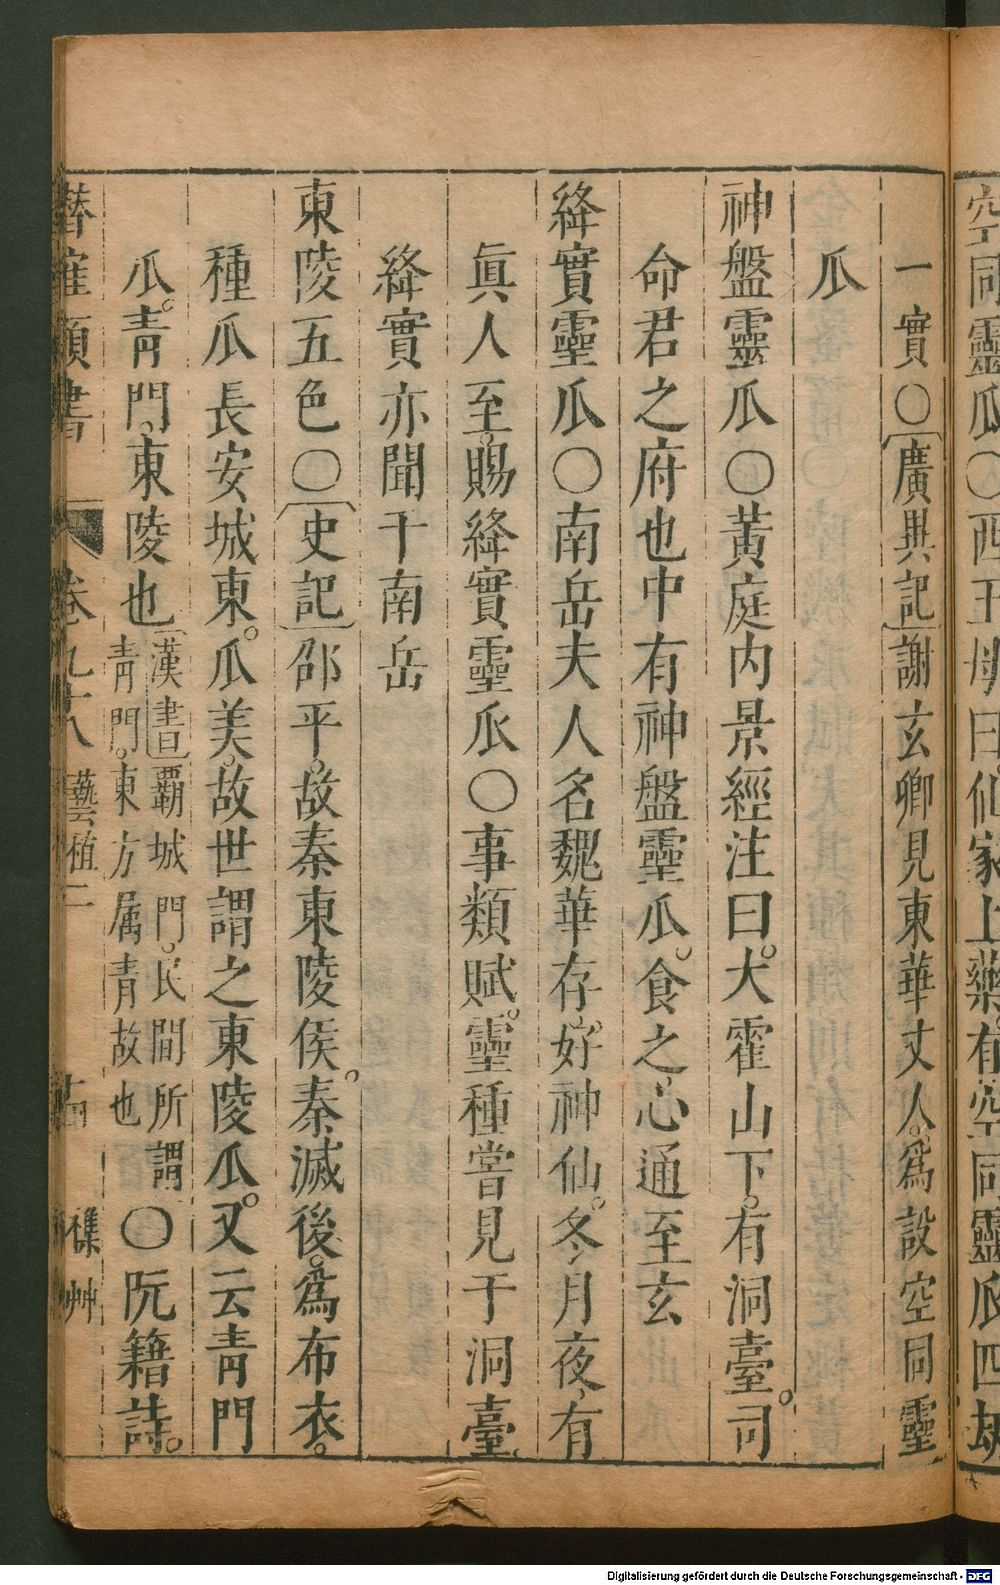 空同靈瓜○西王母曰仙家上藥有空同靈瓜四劫
一實○〔廣輿記〕謝玄卿見東華丈人爲設空同靈
瓜
神盤靈瓜○黃庭内景經注曰大霍山下有洞臺司
命君之府也中有神盤靈瓜食之心通至玄
絳實靈瓜○南岳夫人名魏華存好神仙冬月夜有
眞人至賜絳實靈瓜○事類賦靈種嘗見于洞臺
絳實亦聞于南岳
東陵五色○〔史記〕邵平故秦東陵侯秦滅後爲布衣
種瓜長安城東瓜美故世謂之東陵瓜又云青門
瓜青門東陵也
〔漢書〕覇城門民間所謂
青門東方属青故也
○阮籍詩
潛確類書 卷九十八 藝植二 古 襍艸
Digitalisierung gefördert durch die Deutsche Forschungsgemeinschaft - DFG